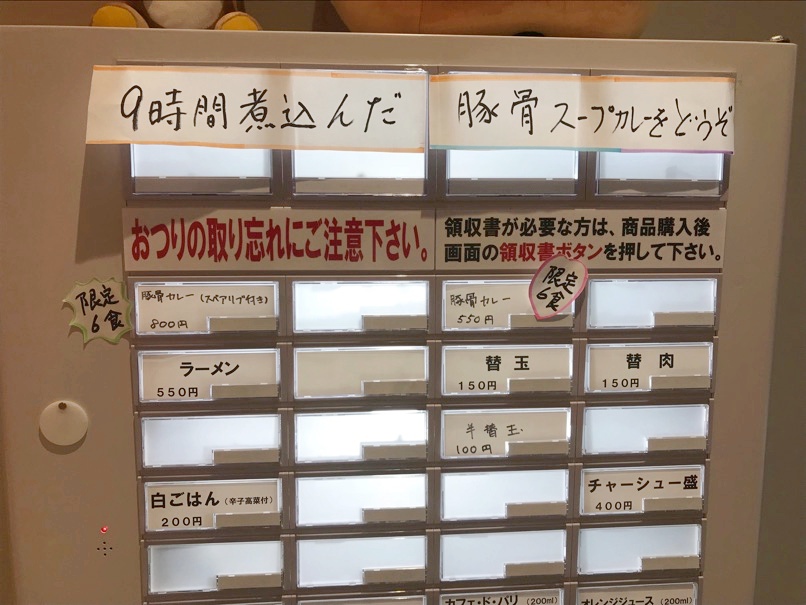 9時間煮込んだ
豚骨スープカレーをどうぞ
おつりの取り忘れにご注意下さい。
領収書が必要な方は、商品購入後
画面の領収書ボタンを押して下さい。
限定
6食
豚骨カレー(スペアリブ付き)
800円
豚骨カレー
550円
限定
6食
ラーメン
550円
替玉
150円
替肉
150円
半替玉
100円
白ごはん(辛子高菜付)
200円
チャーシュー盛
400円
カフェ・ド・パリ(200ml)
オレンジジュース(200ml)